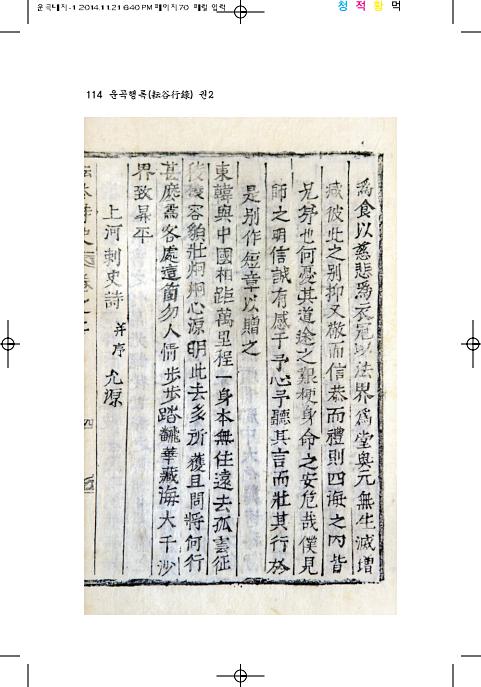 운곡대지-1 2014.11.21 6:40 PM 페이지70 매킬 입력
청 적 황 먹
114 운곡행록(耘谷行錄) 권2
爲食以慈悲爲衣冠以法界爲堂奧元無生滅增
減彼此之別抑又敬而信恭而禮則四海之內皆
兄弟也何憂其道途之艱梗身命之安危哉僕見
師之明信誠有感于予心予聽其言而壯其行於
是別作短章以贈之
東韓與中國相距萬里程一身本無住遠去孤雲征
後 容貌壯炯炯心源明此去多所獲且問將何行
甚麽爲客處這箇勿人情步步踏飜華藏海大千沙
界致昇平
上河刺史詩 并序 允源